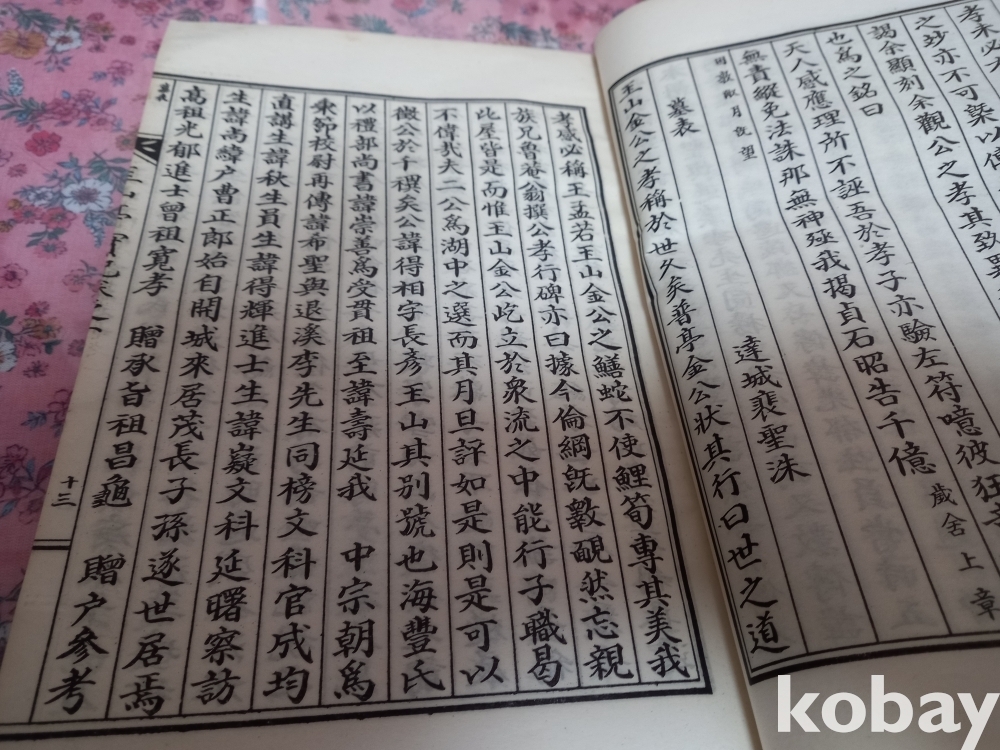 孝未必
之妙亦不可槩以傳
謁余顯刻余觀公之孝其致異
也爲之銘曰
天人感應理所不誣吾於孝子亦驗左符噫彼狂
無責縱免法誅那無神殛我揭貞石昭告千億
歲舍上章
閹
月旣望
達城裵聖洙
墓表
玉山金公之孝稱於世久矣普亭金公狀其行曰世之道
孝感必稱王孟若玉山金公之鱔蛇不使鯉筍專其美我
族兄魯菴翁撰公孝行碑亦曰據今倫綱旣斁靦然忘親
比屋皆是而惟玉山金公屹立於衆流之中能行子職曷
不偉哉夫二公爲湖中之選而其月旦評如是則是可以
徵公於千禩矣公諱得相字長彥玉山其別號也海豐氏
以禮部尚書諱崇善爲受貫祖至諱壽延我 中宗朝爲
秉節校尉再傳諱希聖與退溪李先生同榜文科官成均
直講生諱秋生員生諱得輝進士生諱嶷文科延曙察訪
生諱尚緯户曹正郎始自開城來居茂長子孫遂世居焉
高祖光郁進士曾祖寬孝 贈承旨祖昌龜 贈户參考
墓表
十三
kobay